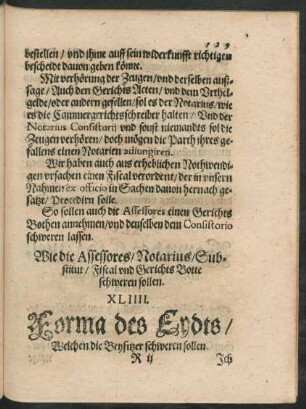 129
bestellen / vnd jhme auff sein widerkunfft richtigen
bescheidt dauon geben könne.
Mit verhörung der Zeugen / vnd derselben auß-
sage / Auch den Gerichts Acten / vnd dem Vrthel-
gelde / oder andern gefellen / sol es der Notarius / wie
es die Cammergerichtsschreiber halten / Vnd der
Notarius Consistorij vnd sonst niemandts sol die
Zeugen verhören / doch mögen die Parth jhres ge-
fallens einen Notarien adiungiren.
Wir haben auch aus erheblichen Nothwendi-
gen vrsachen einen Fiscal verordent / der in vnsern
Nahmen ex officio in Sachen dauon hernach ge-
satzt / Procedirn solle.
So sollen auch die Assessores einen Gerichts
Bothen annehmen / vnd denselben dem Consistorio
schweren lassen.
Wie die Assessores / Notarius / Sub-
stitut / Fiscal vnd Gerichts Botte
schweren sollen.
XLIIII.
Forma des Eydts /
Welchen die Beysitzer schweren sollen.
R ij Ich